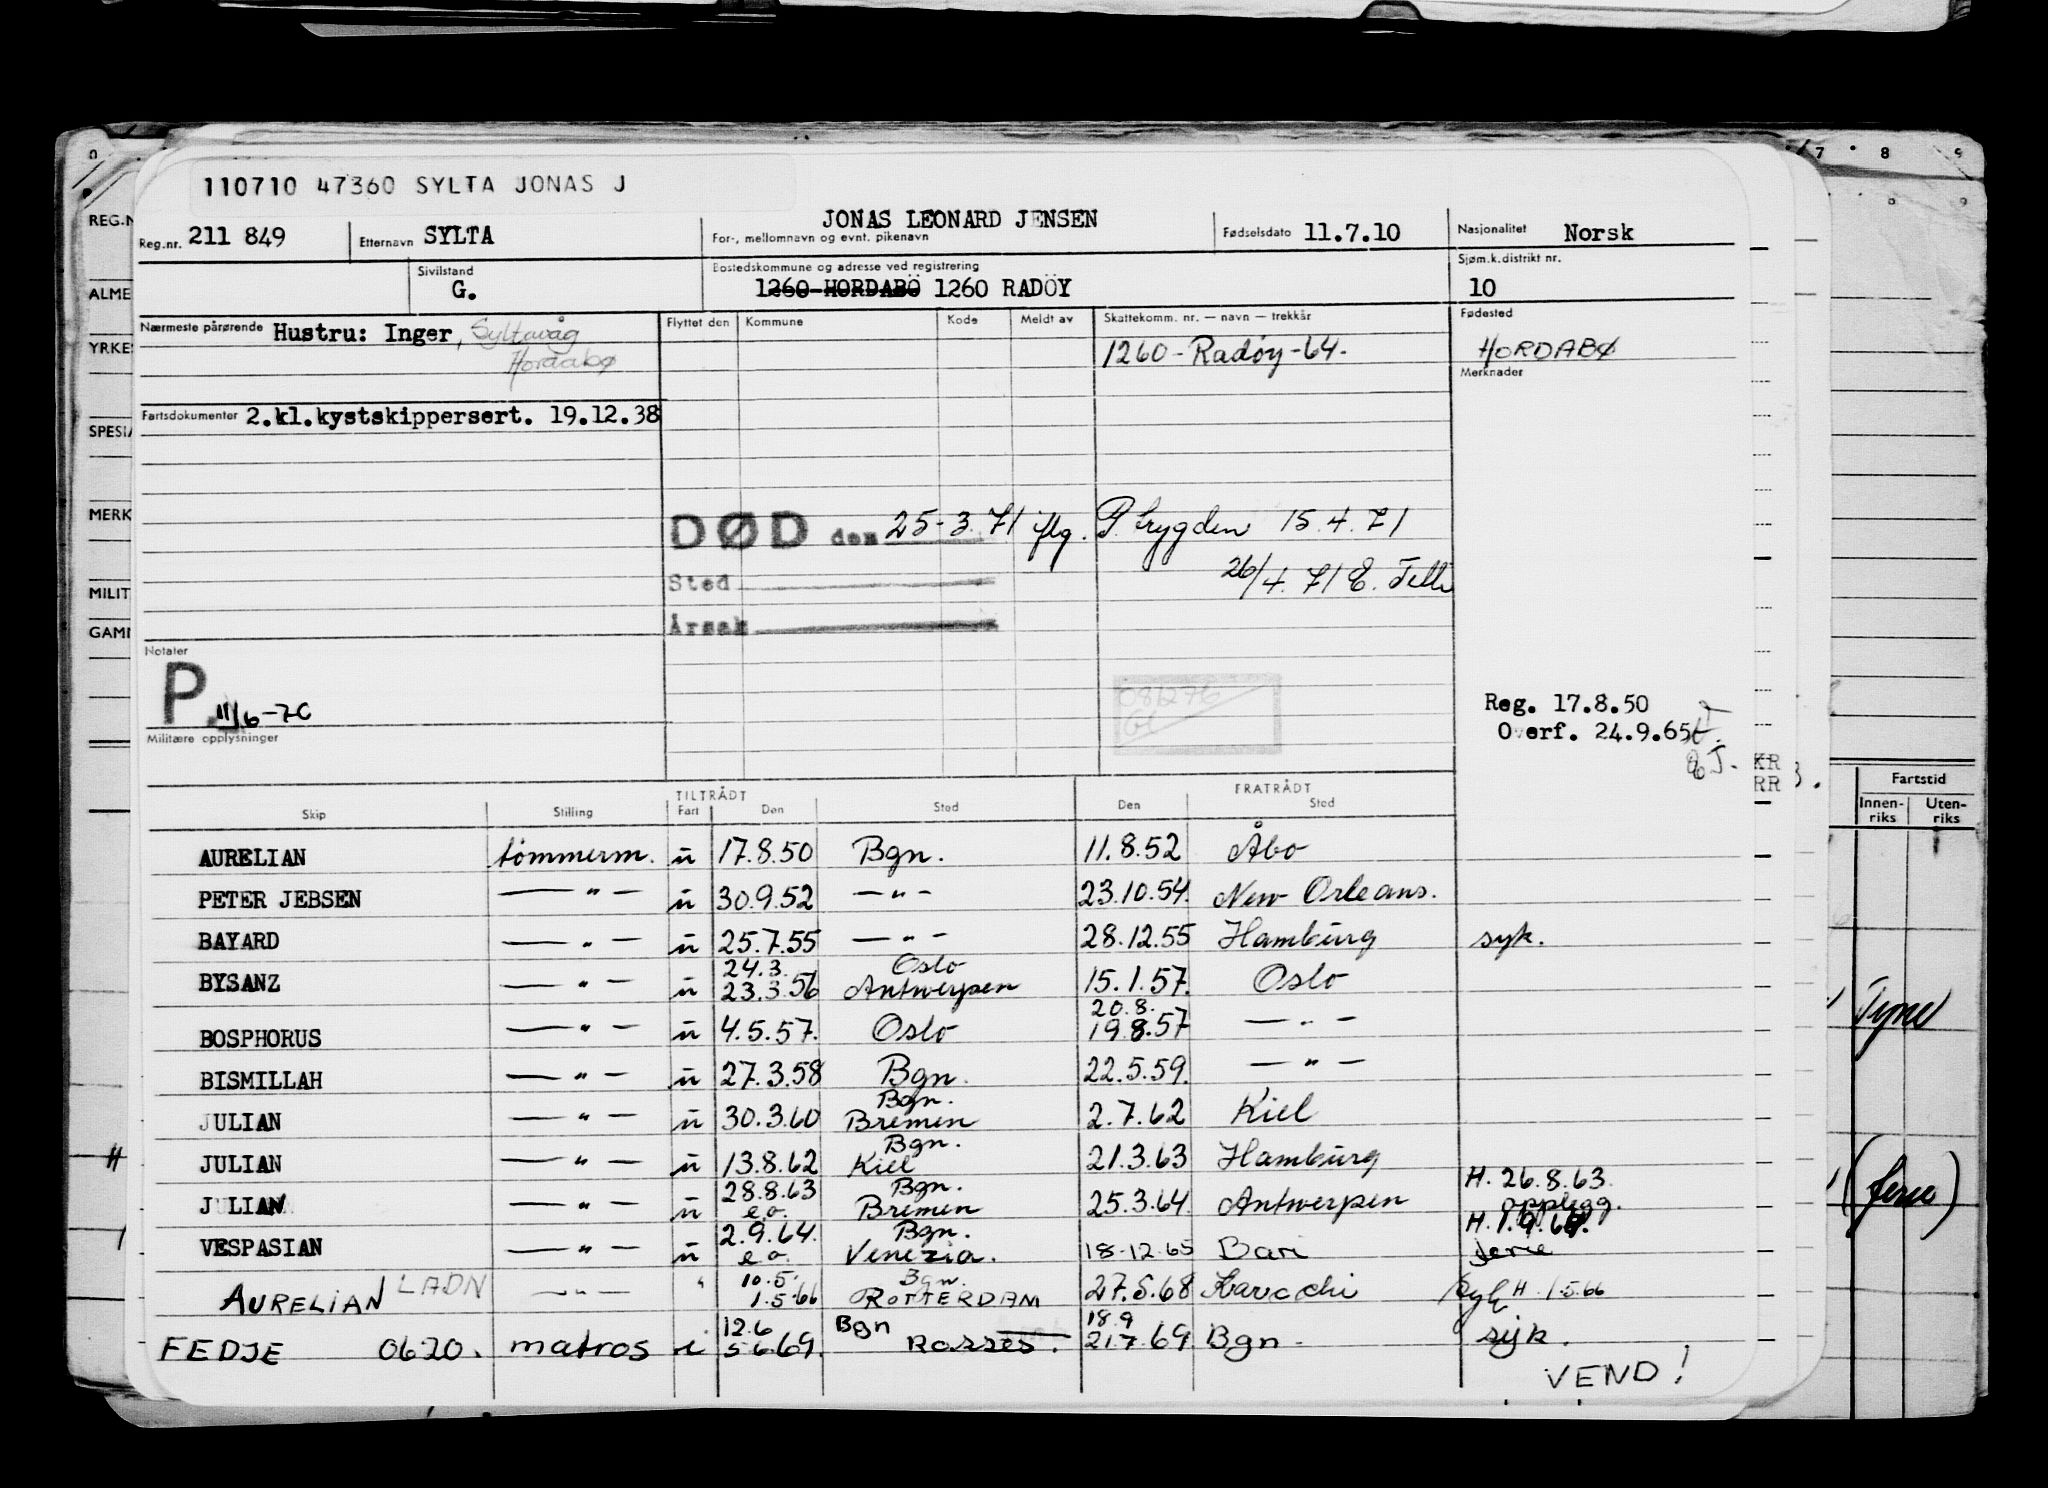 7 8 9
0
110710 47360 SYLTA JONAS J
REG.N
Reg.nr. 211 849 Etternavn SYLTA JONAS LEONARD JENSEN For-, mellomnavn og evnt. pikenavn Fødselsdato 11.7.10 Nasjonalitet Norsk
ALME Sivilstand G. Bostedskommune og adresse ved registrering 1260 HORDABÖ 1260 RADÖY Sjøm.k.distrikt nr. 10
Nærmeste pårørende Hustru: Inger, Syltavåg Flyttet den Kommune Kode Meldt av Skattekomm. nr. — navn — trekkår Fødested
YRKES Hordabø 1260-Radøy-64. HORDABØ
Merknader
SPESIA Fartsdokumenter 2.kl.kystskippersert. 19.12.38
MERK DØD den 25-3.71 iflg. P trygden 15.4.71
MILIT Sted 26/4.71 E.
GAMI Årsak
Notater
P 11/6-70
Reg. 17.8.50
Militære opplysninger Overf. 24.9.65
KR
RR
TILTRÅDT FRATRÅDT Fartstid
Skip Stilling Fart Den Sted Den Sted Innen-riks Uten-riks
AURELIAN tömmerm. u 17.8.50 Bgn. 11.8.52 Åbo
PETER JEBSEN —"— u 30.9.52 —"— 23.10.54 New Orleans.
BAYARD —"— u 25.7.55 —"— 28.12.55 Hamburg syk.
24.3. Oslo
BYSANZ —"— u 23.3.56 Antwerpen 15.1.57. Oslo
20.8.
BOSPHORUS —"— u 4.5.57. Oslo 19.8.57 —"—
BISMILLAH —"— u 27.3.58 Bgn. 22.5.59. —"—
Bgn.
JULIAN —"— u 30.3.60 Bremen 2.7.62 Kiel
Bgn.
JULIAN —"— u 13.8.62 Kiel 21.3.63 Hamburg
28.8.63 Bgn. H. 26.8.63.
JULIAN —"— u e.o. Bremen 25.3.64 Antwerpen opplegg.
2.9.64. Bgn. H. 1.9.64.
VESPASIAN —"— u e.o. Venezia. 18-12.65 Bari ferie
10.5. Bgn.
AURELIAN LADN —"— " 1.5.66 ROTTERDAM 27.5.68 Karachi syk H 1.5.66
12.6 Bgn 18.9
FEDJE 0620. matros i 5.6.69. 21.7.69. Bgn. syk.
VEND!